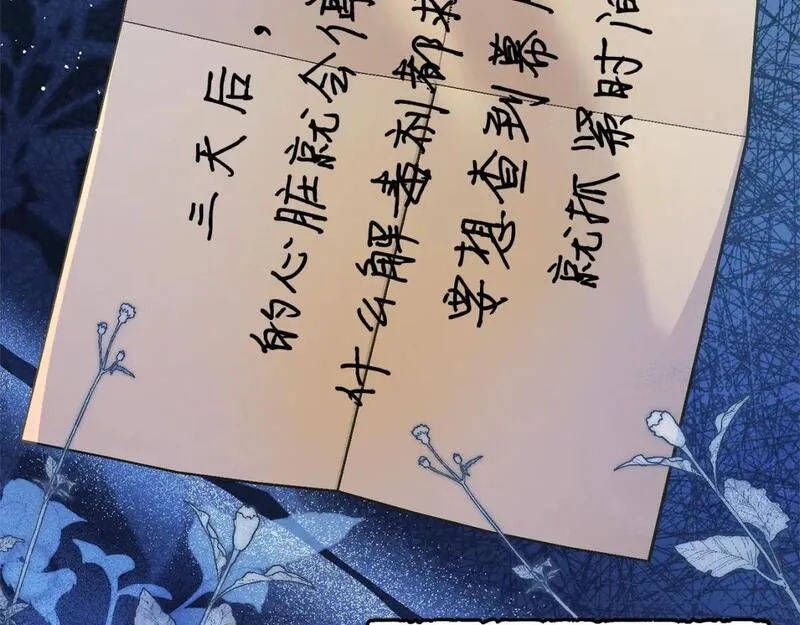 三天后，
的心脏就会停
什么解毒剂都
要想查到幕
就抓紧时间